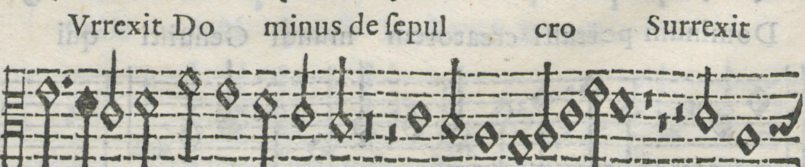 Vrrexit Do minus de ſepul cro Surrexit